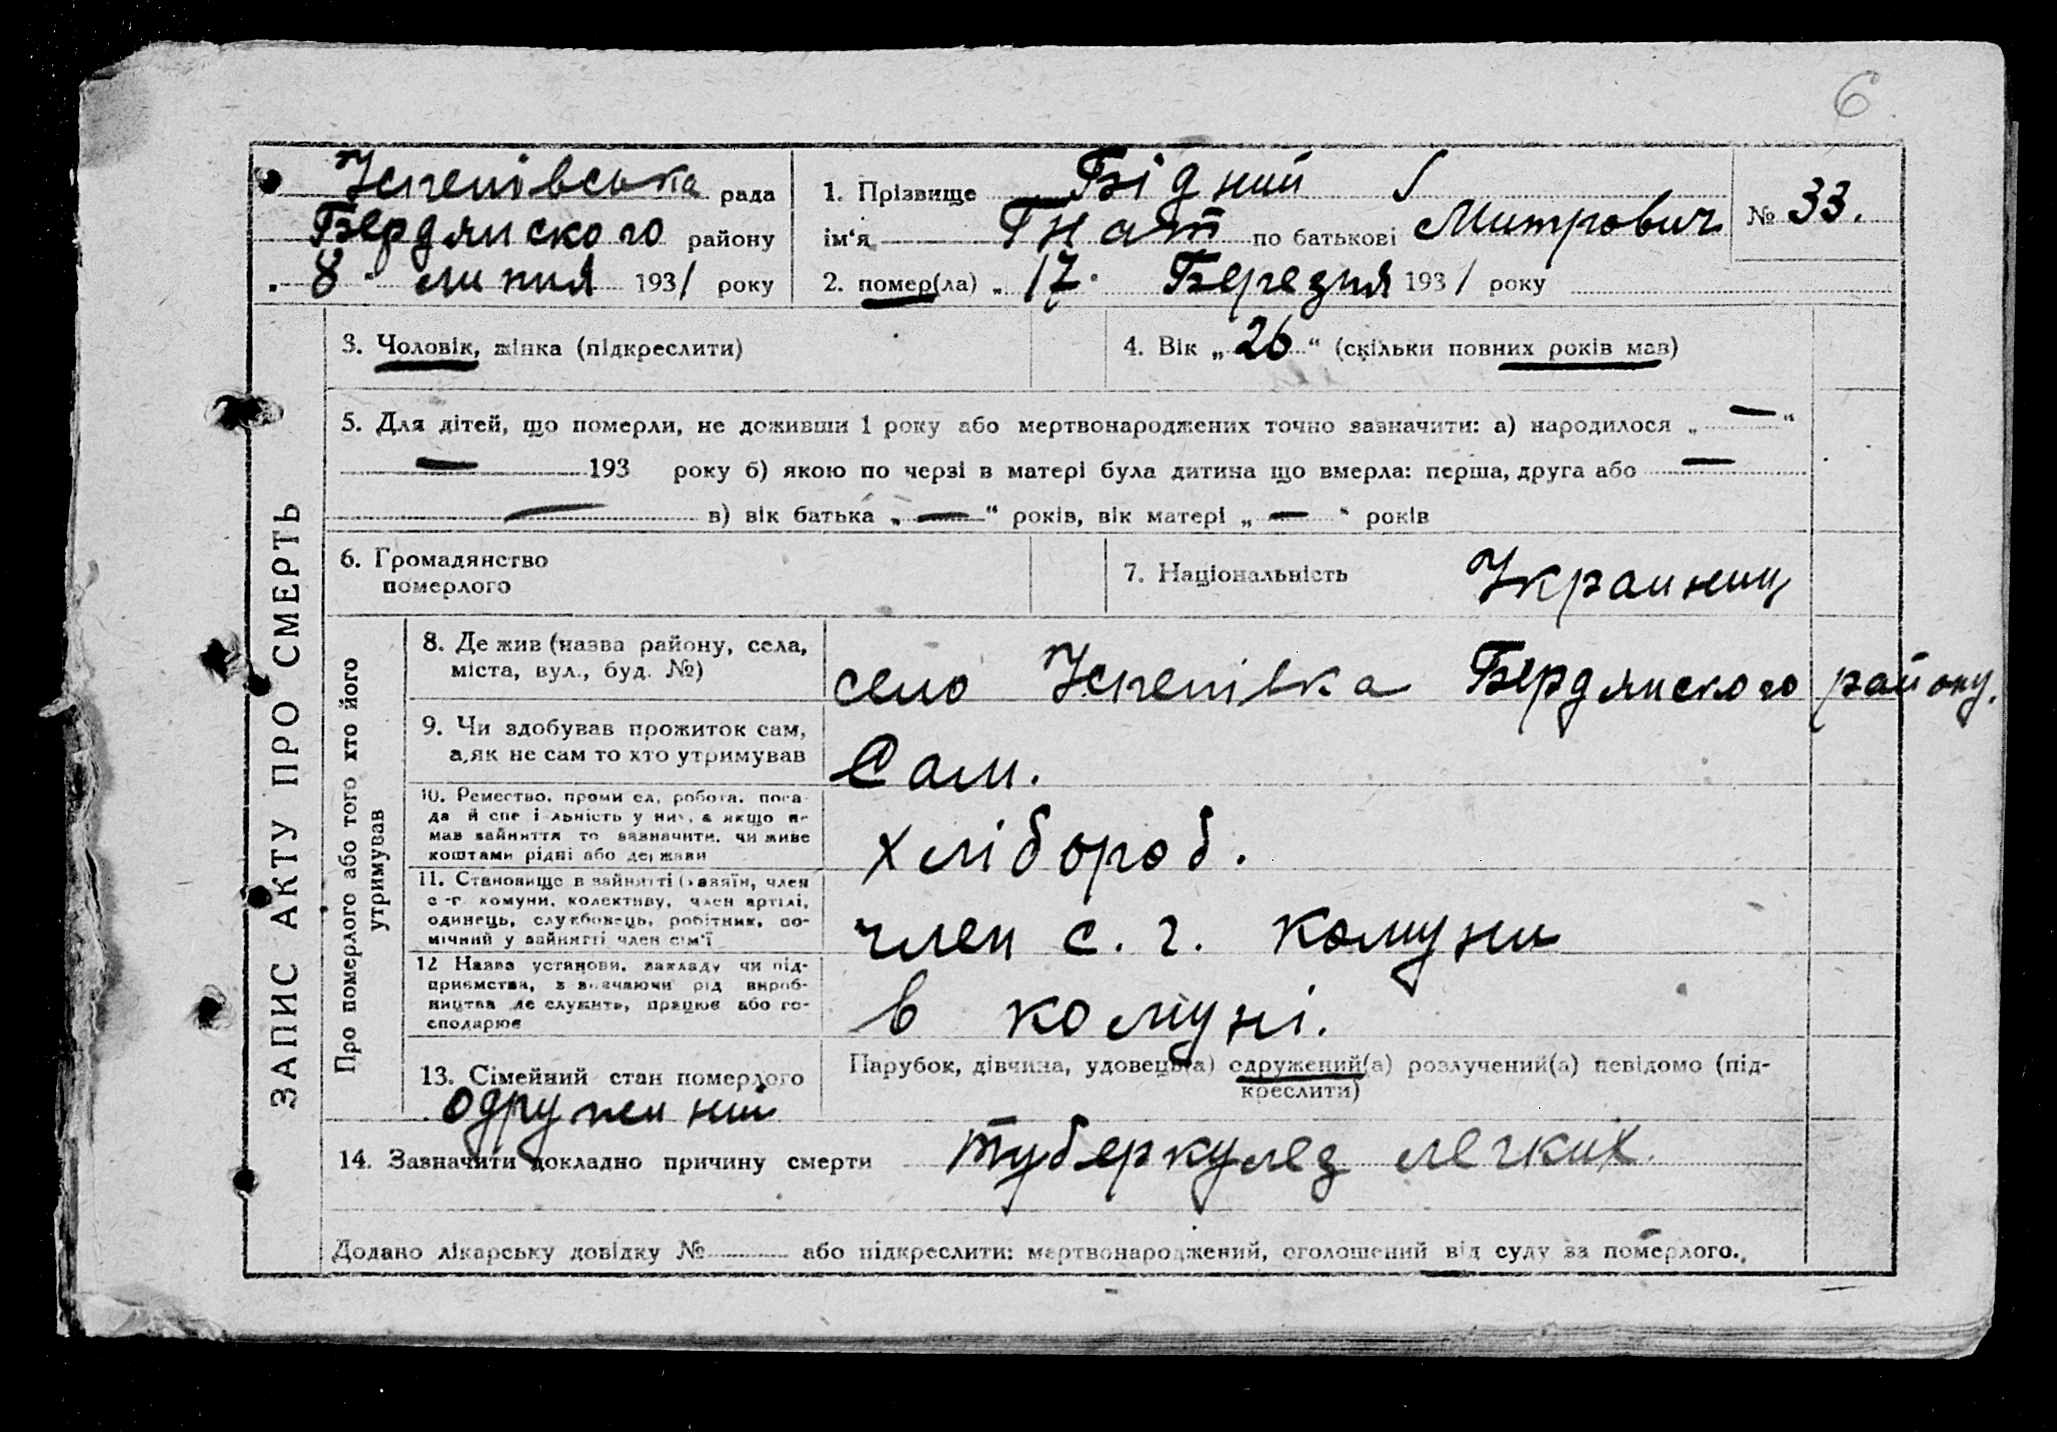 6
Успенівська рада
Бердянского району
„ 8 " липня 1931 року
1. Прізвище Бідний
ім'я Гнат по батькові Митрович
№ 33.
2. помер(ла) „ 17 " Березня 1931 року
ЗАПИС АКТУ ПРО СМЕРТЬ
3. Чоловік, жінка (підкреслити)
4. Вік „ 26 " (скільки повних років мав)
5. Для дітей, що померли, не доживши 1 року або мертвонароджених точно зазначити: а) народилося „ — "
— 193 року б) якою по черзі в матері була дитина що вмерла: перша, друга або —
— в) вік батька „ — " років, вік матері „ — " років
6. Громадянство
померлого
7. Національність Украинец
Про померлого або того хто його
утримував
8. Де жив (назва району, села,
міста, вул., буд. №)
село Успенівка Бердянского району.
9. Чи здобував прожиток сам,
а, як не сам то хто утримував
Сам.
10. Ремество, промисел, робота, поса-
да й спеціальність у них, а якщо не
мав зайняття то зазначити, чи живе
коштами рідні або держави
хлібороб.
11. Становище в зайнятті (хазяїн, член
с-г. комуни, колективу, член артілі,
одинець, службовець, робітник, по-
мічний у зайнятті член сім'ї
член с. г. комуни
12 Назва установи, закладу чи під-
приємства, зазначаючи рід вироб-
ництва де служить, працює або го-
сподарює
в комуні.
13. Сімейний стан померлого
одружений
Парубок, дівчина, удовець(а) одружений(а) розлучений(а) невідомо (під-
креслити)
14. Зазначити докладно причину смерти туберкулез легких
Додано лікарську довідку № або підкреслити: мертвонароджений, оголошений від суду за померлого.